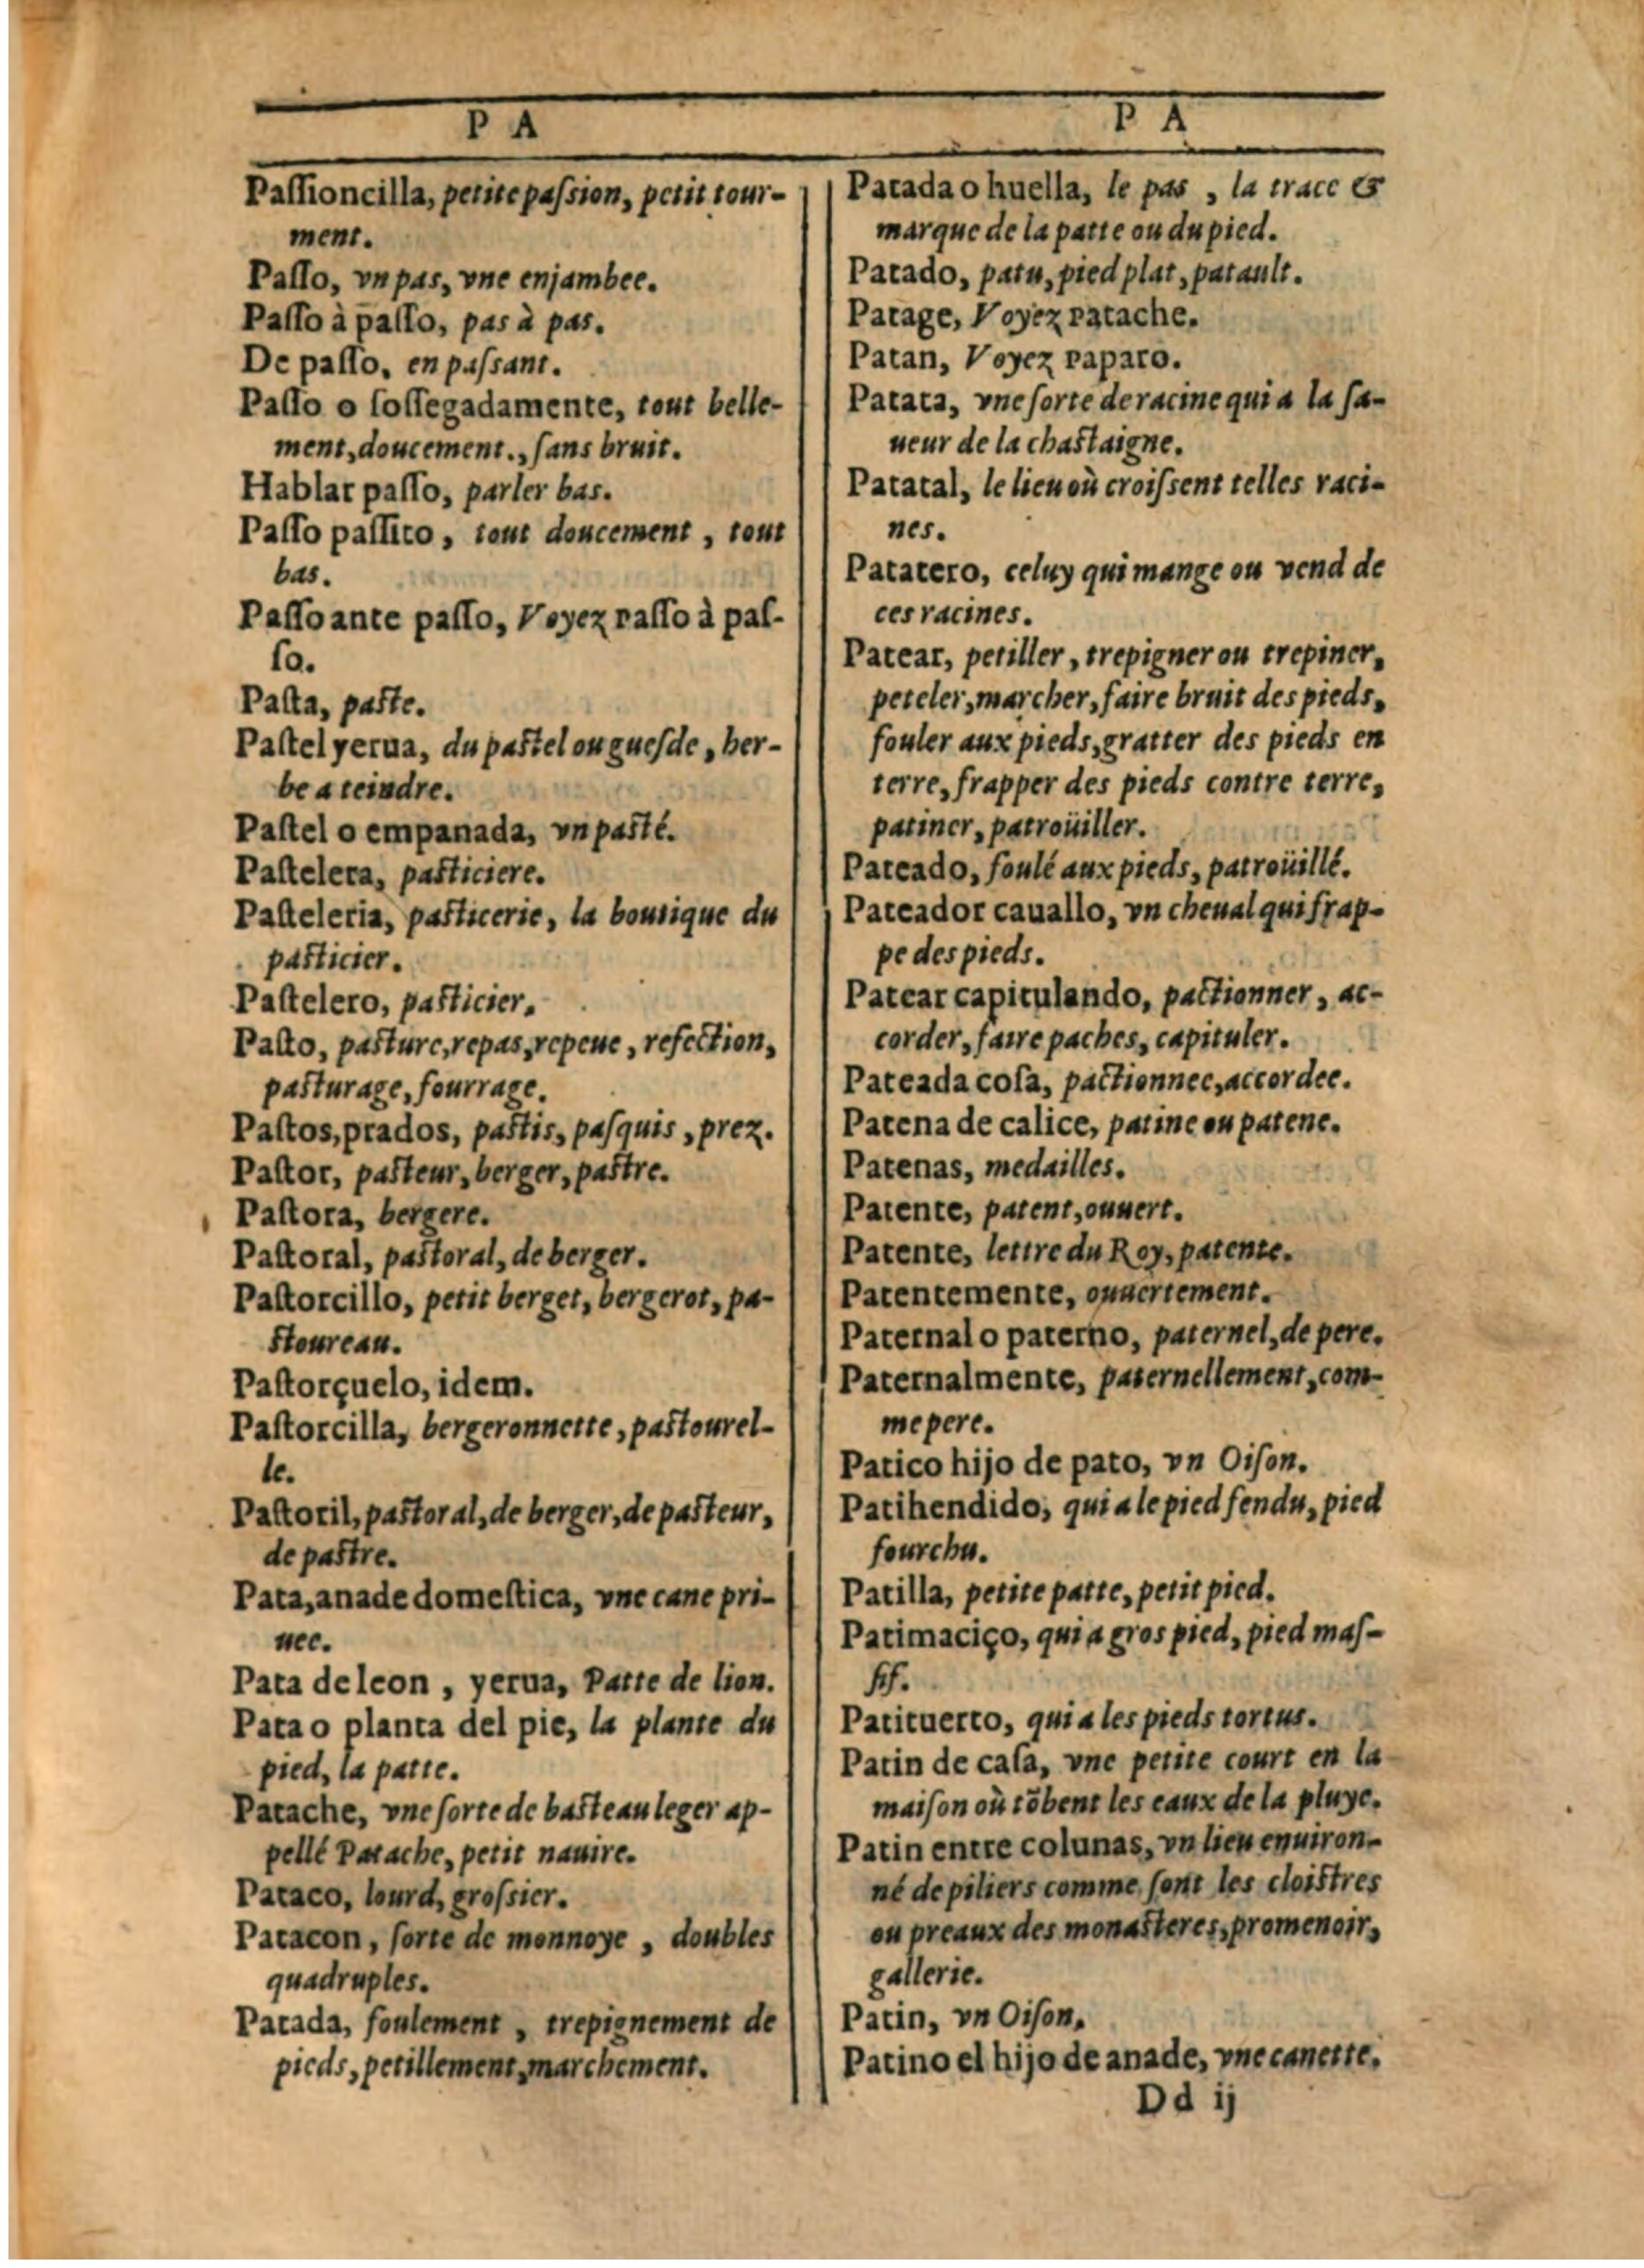 P A
Paſſioncilla, petite paſsion, petit tour-
ment.
Paſſo, vn pas, vne enjambee.
Paſſo à paſſo, pas à pas.
De paſſo, en paſsant.
Paſſo o ſoſſegadamente, tout belle-
ment, doucement., ſans bruit.
Hablar paſſo, parler bas.
Paſſo paſſito, tout doucement, tout
bas.
Paſſo ante paſſo, Voyez paſſo à paſ-
ſo.
Paſta, paſte.
Paſtel yerua, du paſtel ou gueſde, her-
be a teindre.
Paſtel o empanada, vn paſté.
Paſtelera, paſticiere.
Paſteleria, paſticerie, la boutique du
paſticier.
Paſtelero, paſticier,
Paſto, paſture, repas, repeue, refection,
paſturage, fourrage.
Paſtos, prados, paſtis, paſquis, prez.
Paſtor, paſteur, berger, paſtre.
Paſtora, bergere.
Paſtoral, paſtoral, de berger.
Paſtorcillo, petit berget, bergerot, pa-
ſtoureau.
Paſtorçuelo, idem.
Paſtorcilla, bergeronnette, paſtourel-
le.
Paſtoril, paſtoral, de berger, de paſteur,
de paſtre.
Pata, anade domeſtica, vne cane pri-
uee.
Pata de leon, yerua, Patte de lion.
Pata o planta del pie, la plante du
pied, la patte.
Patache, vne ſorte de baſteau leger ap-
pellé Patache, petit nauire.
Pataco, lourd, groſsier.
Patacon, ſorte de monnoye, doubles
quadruples.
Patada, foulement, trepignement de
pieds, petillement, marchement.
P A
Patada o huella, le pas, la trace &
marque de la patte ou du pied.
Patado, patu, pied plat, patault.
Patage, Voyez patache.
Patan, Voyez paparo.
Patata, vne ſorte de racine qui a la ſa-
ueur de la chaſtaigne.
Patatal, le lieu où croiſsent telles raci-
nes.
Patatero, celuy qui mange ou vend de
ces racines.
Patear, petiller, trepigner ou trepiner,
peteler, marcher, faire bruit des pieds,
fouler aux pieds, gratter des pieds en
terre, frapper des pieds contre terre,
patiner, patroüiller.
Pateado, foulé aux pieds, patroüillé.
Pateador cauallo, vn cheual qui frap-
pe des pieds.
Patear capitulando, pactionner, ac-
corder, faire paches, capituler.
Pateada coſa, pactionnee, accordee.
Patena de calice, patine ou patene.
Patenas, medailles.
Patente, patent, ouuert.
Patente, lettre du Roy, patente.
Patentemente, ouuertement.
Paternal o paterno, paternel, de pere.
Paternalmente, paternellement, com-
me pere.
Patico hijo de pato, vn Oiſon.
Patihendido, qui a le pied fendu, pied
fourchu.
Patilla, petite patte, petit pied.
Patimaciço, qui a gros pied, pied maſ-
ſif.
Patituerto, qui a les pieds tortus.
Patin de caſa, vne petite court en la
maiſon où tõbent les eaux de la pluye.
Patin entre colunas, vn lieu enuiron-
né de piliers comme ſont les cloiſtres
ou preaux des monaſteres, promenoir,
gallerie.
Patin, vn Oiſon,
Patino el hijo de anade, vne canette.
Dd ij